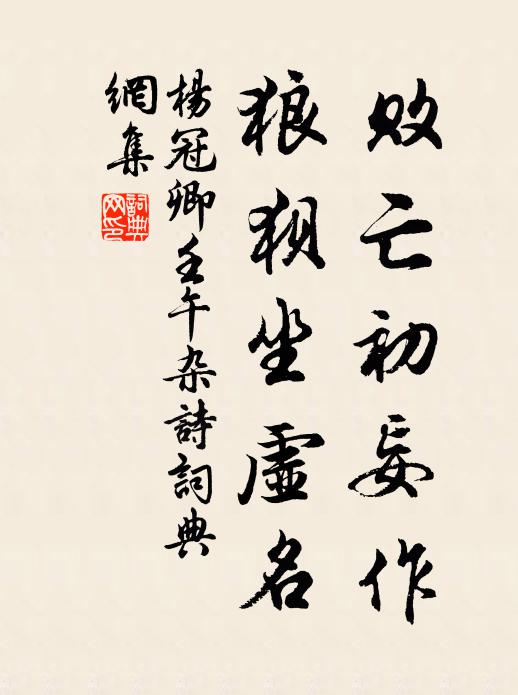 败亡初妄作
狼狽坐虛名
楊冠卿壬午杂詩詞典
網集
詞典
网印